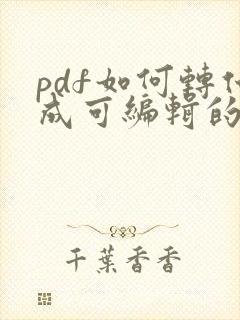 pdf如何轉
成可編輯的
千葉香香